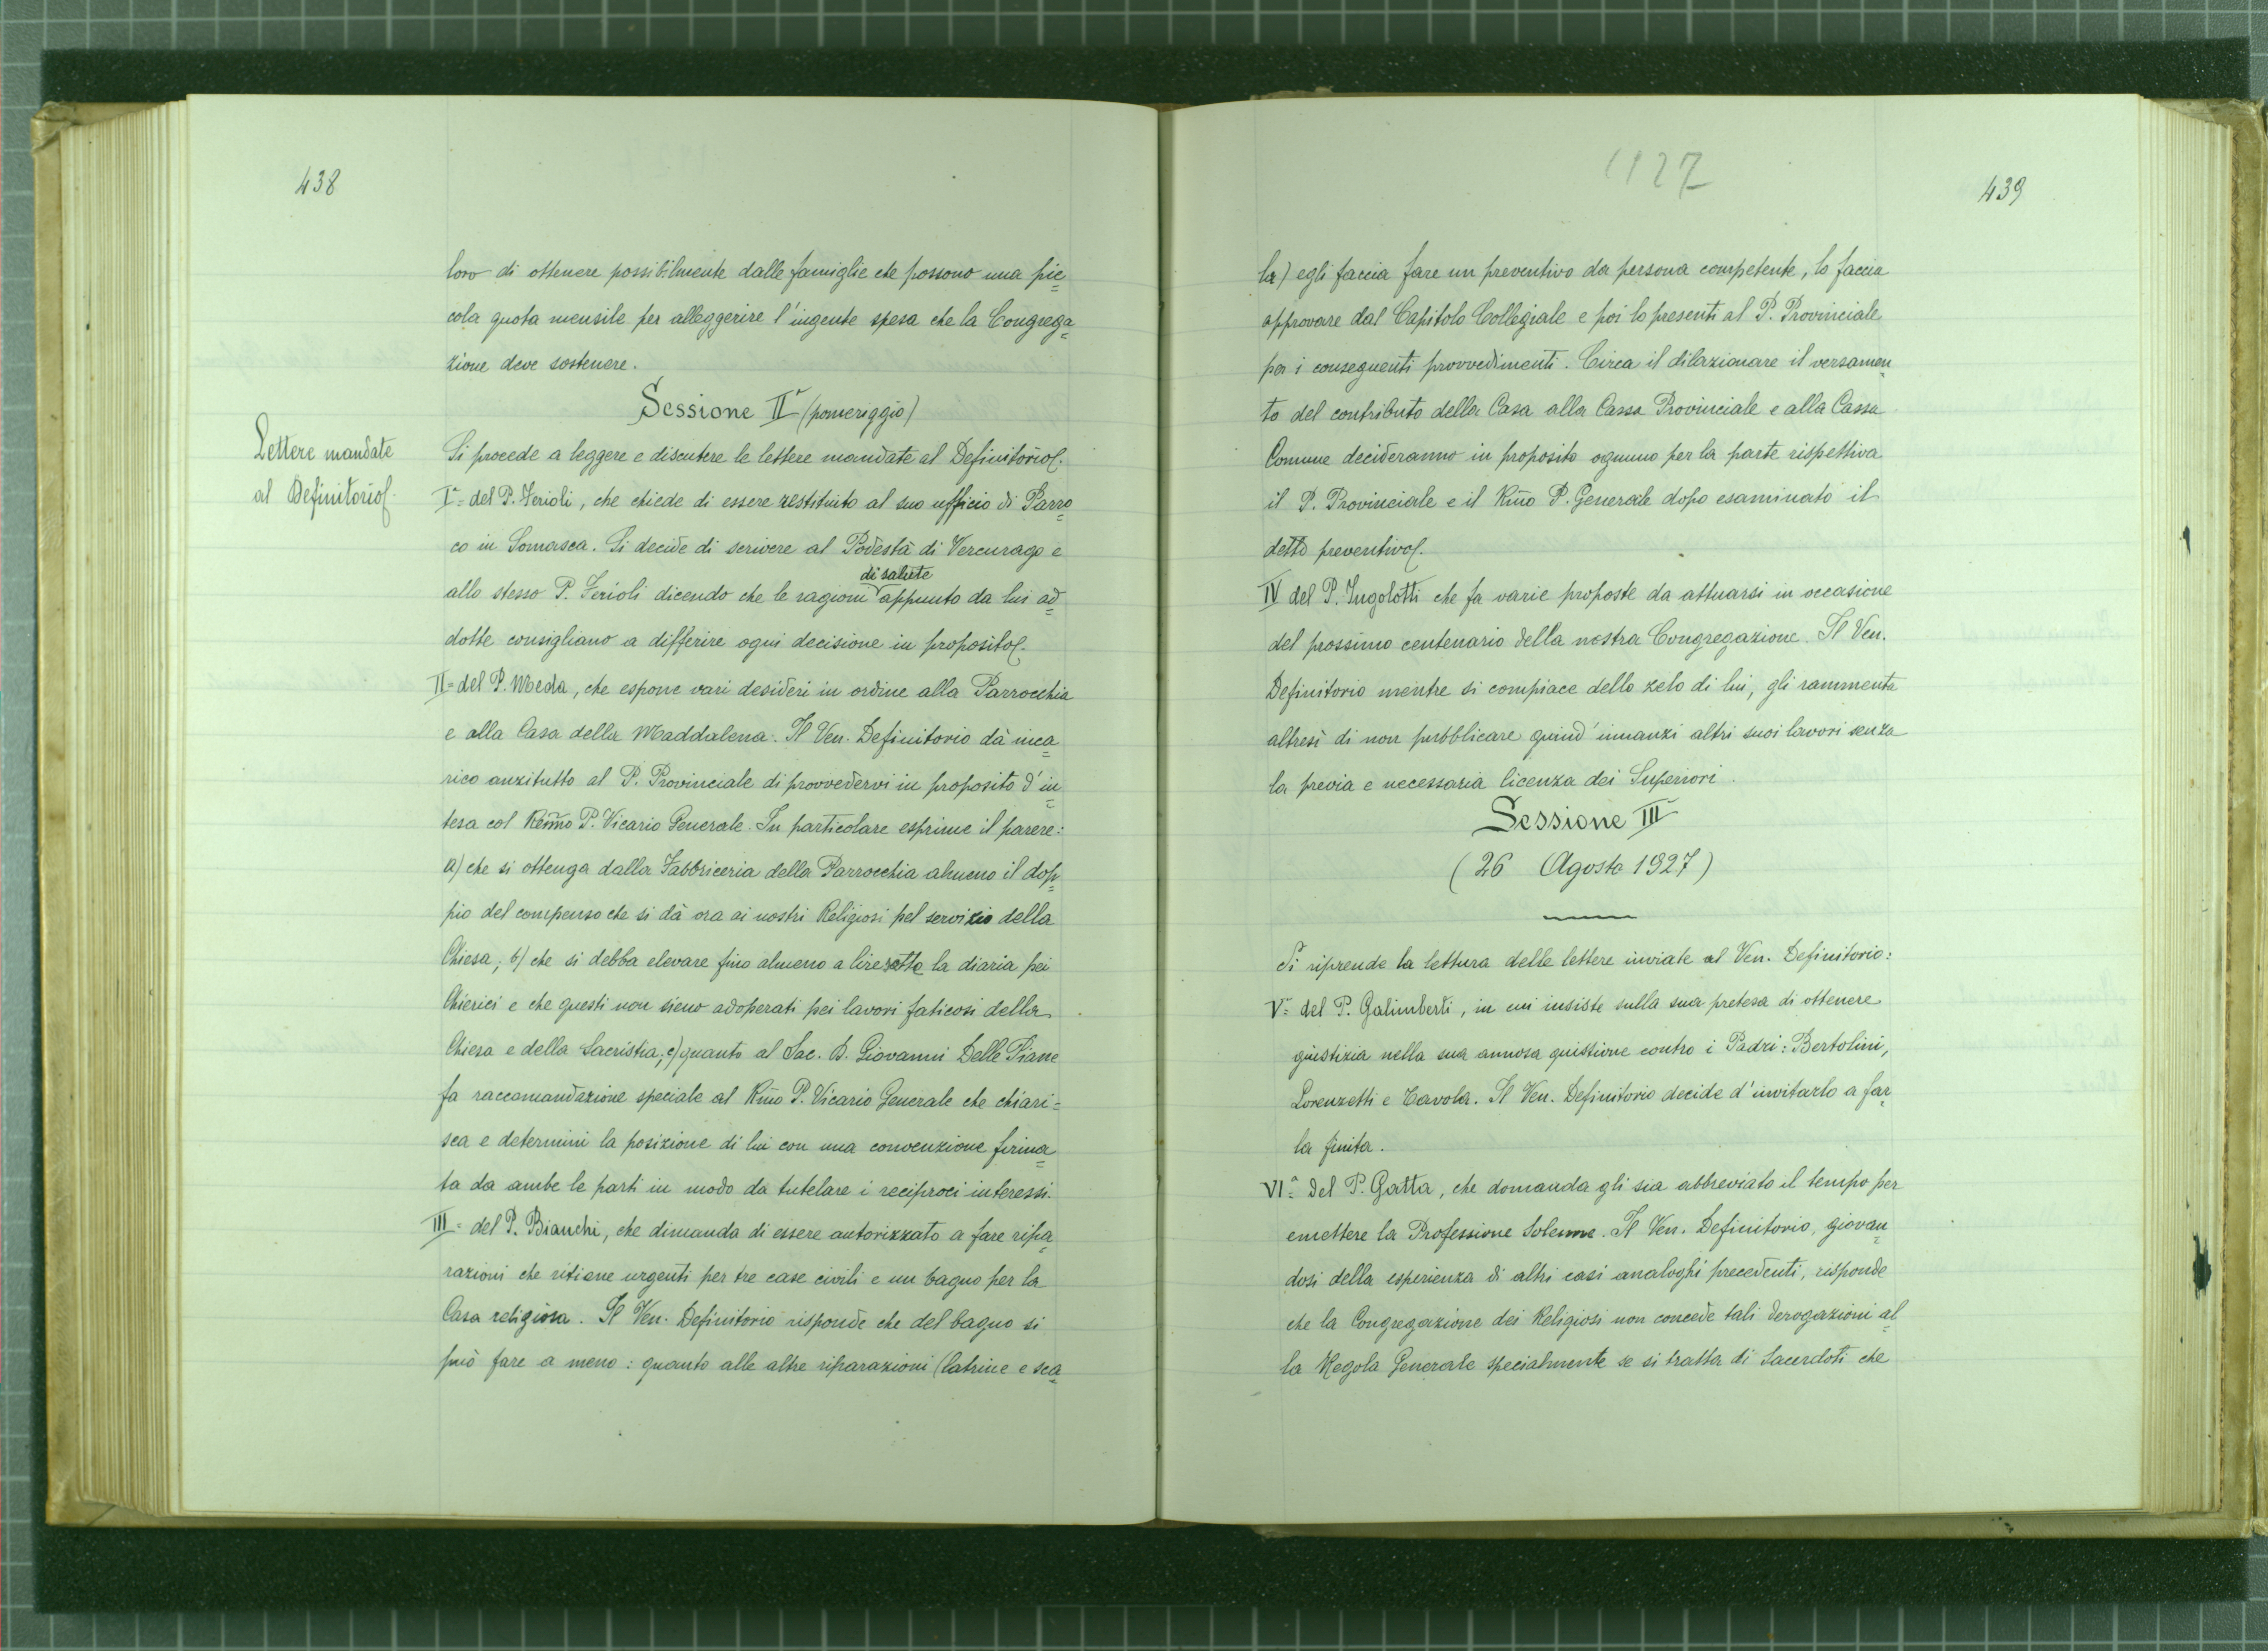 438
loro di ottenere possibilmente dalle famiglie che possono una pic=
cola quota mensile per alleggerire l'ingente spesa che la Congrega=
zione deve sostenere.
Sessione IIª (pomeriggio)
Lettere mandate
al Definitorio.
Si procede a leggere e discutere le lettere mandate al Definitorio.
Iª= del P. Ferioli, che chiede di essere restituito al suo ufficio di Parro=
co in Somasca. Si decide di scrivere al Podestà di Vercurago e
di salute
allo stesso P. Ferioli dicendo che le ragioni appunto da lui ad=
dotte consigliano a differire ogni decisione in proposito.
II= del P. Meda, che espone vari desideri in ordine alla Parrocchia
e alla Casa della Maddalena. Il Ven. Definitorio dà inca=
rico anzitutto al P. Provinciale di provvedervi in proposito d'in=
tesa col Remo P. Vicario Generale. In particolare esprime il parere:
a) che si ottenga dalla Fabbriceria della Parrocchia almeno il dop=
pio del compenso che si dà ora ai nostri Religiosi pel servizio della
Chiesa; b) che si debba elevare fino almeno a lire otto la diaria pei
Chierici e che questi non sieno adoperati pei lavori faticosi della
Chiesa e della Sacristia; c) quanto al Sac. D. Giovanni Delle Piane
fa raccomandazione speciale al Rmo P. Vicario Generale che chiari=
sca e determini la posizione di lui con una convenzione firma=
ta da ambe le parti in modo da tutelare i reciproci interessi.
III= del P. Bianchi, che dimanda di essere autorizzato a fare ripa=
razioni che ritiene urgenti per tre case civili e un bagno per la
Casa religiosa. Il Ven. Definitorio risponde che del bagno si
può fare a meno: quanto alle altre riparazioni (latrine e sca=
1927
439
la) egli faccia fare un preventivo da persona competente, lo faccia
approvare dal Capitolo Collegiale e poi lo presenti al P. Provinciale
per i conseguenti provvedimenti. Circa il dilazionare il versamen=
to del contributo della Casa alla Cassa Provinciale e alla Cassa
Comune decideranno in proposito ognuno per la parte rispettiva
il P. Provinciale e il Rmo P. Generale dopo esaminato il
detto preventivo.
IV del P. Ingolotti che fa varie proposte da attuarsi in occasione
del prossimo centenario della nostra Congregazione. Il Ven.
Definitorio mentre si compiace dello zelo di lui, gli rammenta
altresì di non pubblicare quind'innanzi altri suoi lavori senza
la previa e necessaria licenza dei Superiori.
Sessione IIIª
(26 Agosto 1927)
Si riprende la lettura delle lettere inviate al Ven. Definitorio:
Vª= del P. Galimberti, in cui insiste sulla sua pretesa di ottenere
giustizia nella sua annosa quistione contro i Padri: Bertolini,
Lorenzetti e Tavola. Il Ven. Definitorio decide d'invitarlo a far=
la finita.
VIª= del P. Gatta, che domanda gli sia abbreviato il tempo per
emettere la Professione Solenne. Il Ven. Definitorio, giovan=
dosi della esperienza di altri casi analoghi precedenti, risponde
che la Congregazione dei Religiosi non concede tali derogazioni al=
la Regola Generale specialmente se si tratta di Sacerdoti che